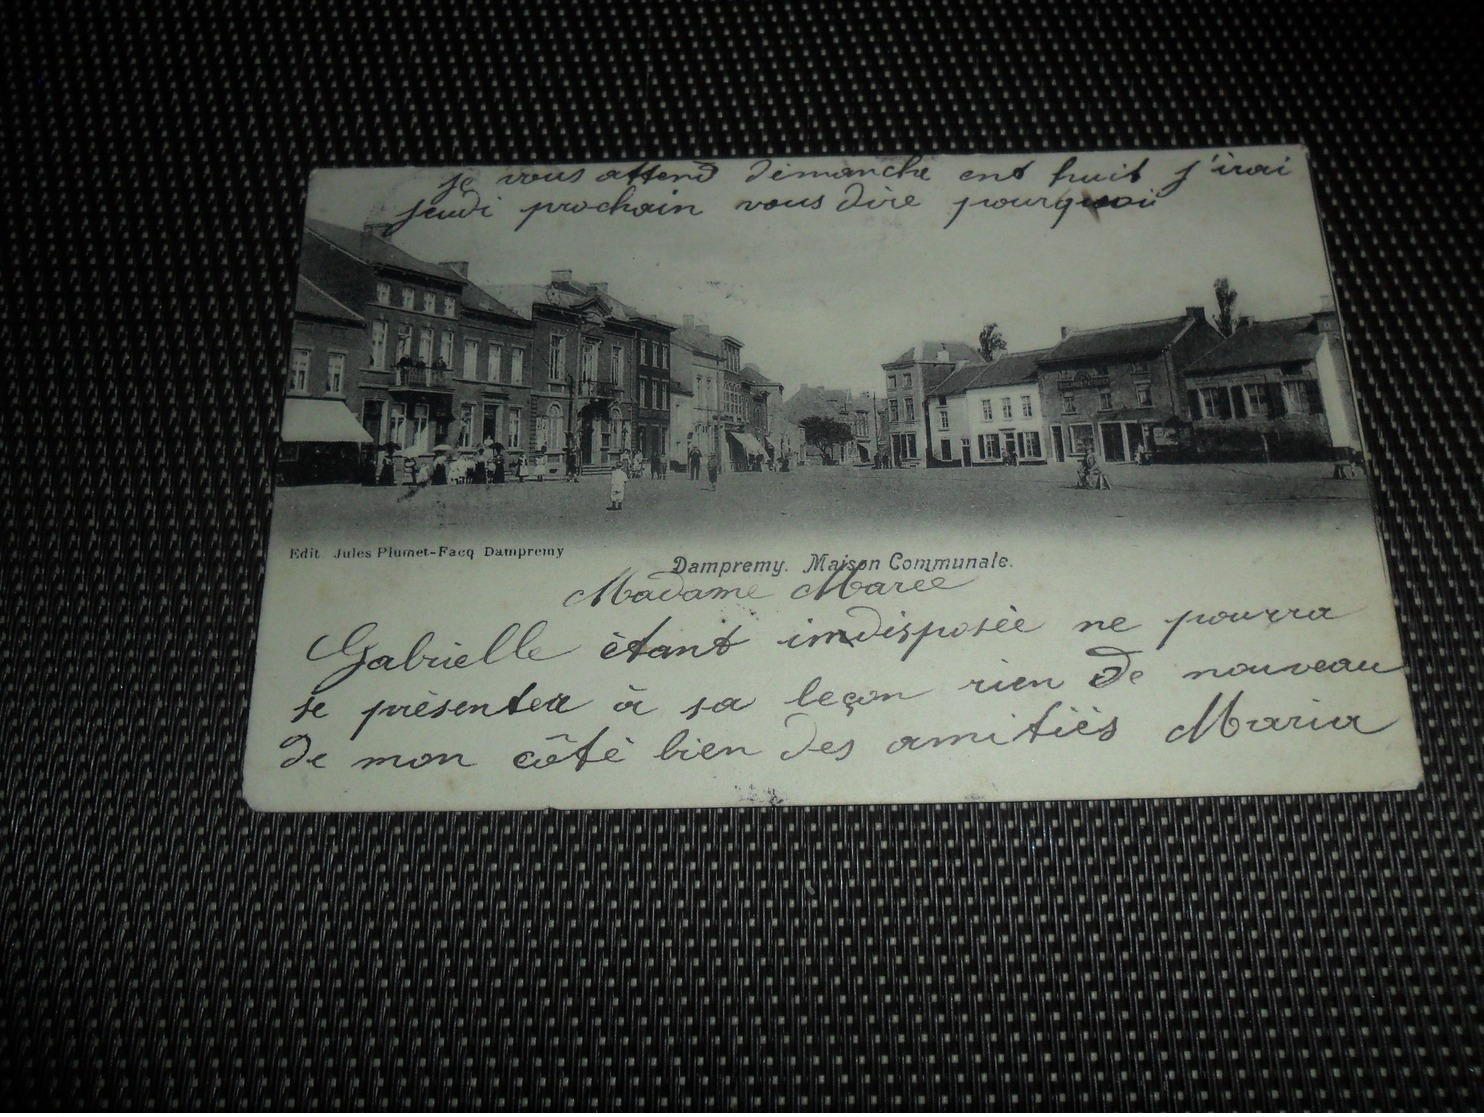 je vous attend dimanche ent huit j'irai
jeudi prochain vous dire pourquoi
Edit Jules Plumet-Facq Dampremy
Dampremy. Maison Communale.
Madame Maree
Gabrielle étant indisposée ne pourra
se présenter à sa leçon rien de nouveau
de mon côté bien des amitiés Maria